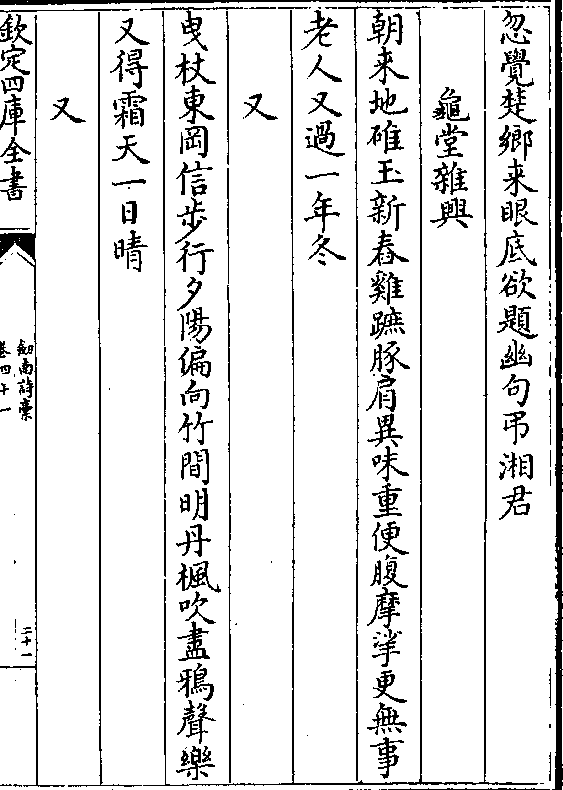 忽覺楚鄉来眼底欲題幽句弔湘君
龜堂雜興
朝来地碓玉新舂雞蹠豚肩異味重便腹摩挲更無事
老人又過一年冬
又
曳杖東岡信步行夕陽偏向竹間明丹楓吹盡鴉聲樂
又得霜天一日晴
又
欽定四庫全書
劍南詩稾
卷四十一
二十一